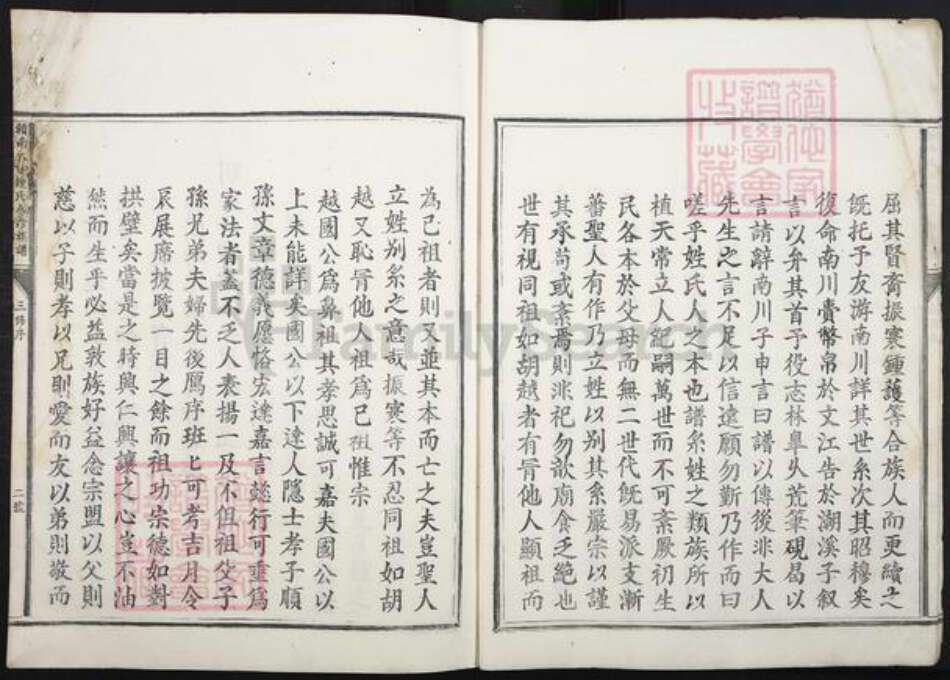 屈其賢裔振寰鍾護等合族人而更續之
既托予友游南川詳其世系次其昭穆矣
復命南川賫幣帛於文江告於湖溪子叙
言以弁其首予役志林臯久荒筆硯曷以
言請辭南川子申言曰譜以傳後非大人
先生之言不足以信遠願勿靳乃作而曰
嗟乎姓氏人之本也譜系姓之類族所以
植天常立人紀嗣萬世而不可紊厥初生
民各本於父母而無二世代既易派支漸
蕃聖人有作乃立姓以别其系嚴宗以謹
其承苟或紊焉則非祀勿歆廟食乏絶也
世有視同祖如胡越者有冐他人顯祖而
為己祖者則又並其本而亡之夫豈聖人
立姓别系之意哉振寰等不忍同祖如胡
越又恥冐他人祖爲己祖惟宗
越國公爲鼻祖其孝思誠可嘉夫國公以
上未能詳矣國公以下達人隱士孝子順
孫文章德義愿恪宏達嘉言懿行可垂爲
家法者蓋不乏人表揚一及不但祖父子
孫兄弟夫婦先後鴈序班匕可考吉月令
辰展席披覽一目之餘而祖功宗德如對
拱璧矣當是之時興仁興讓之心豈不油
然而生乎必益敦族好益念宗盟以父則
慈以子則孝以兄則愛而友以弟則敬而
氏族譜
三脩序
二號
譜學會
收藏
FamilySearch